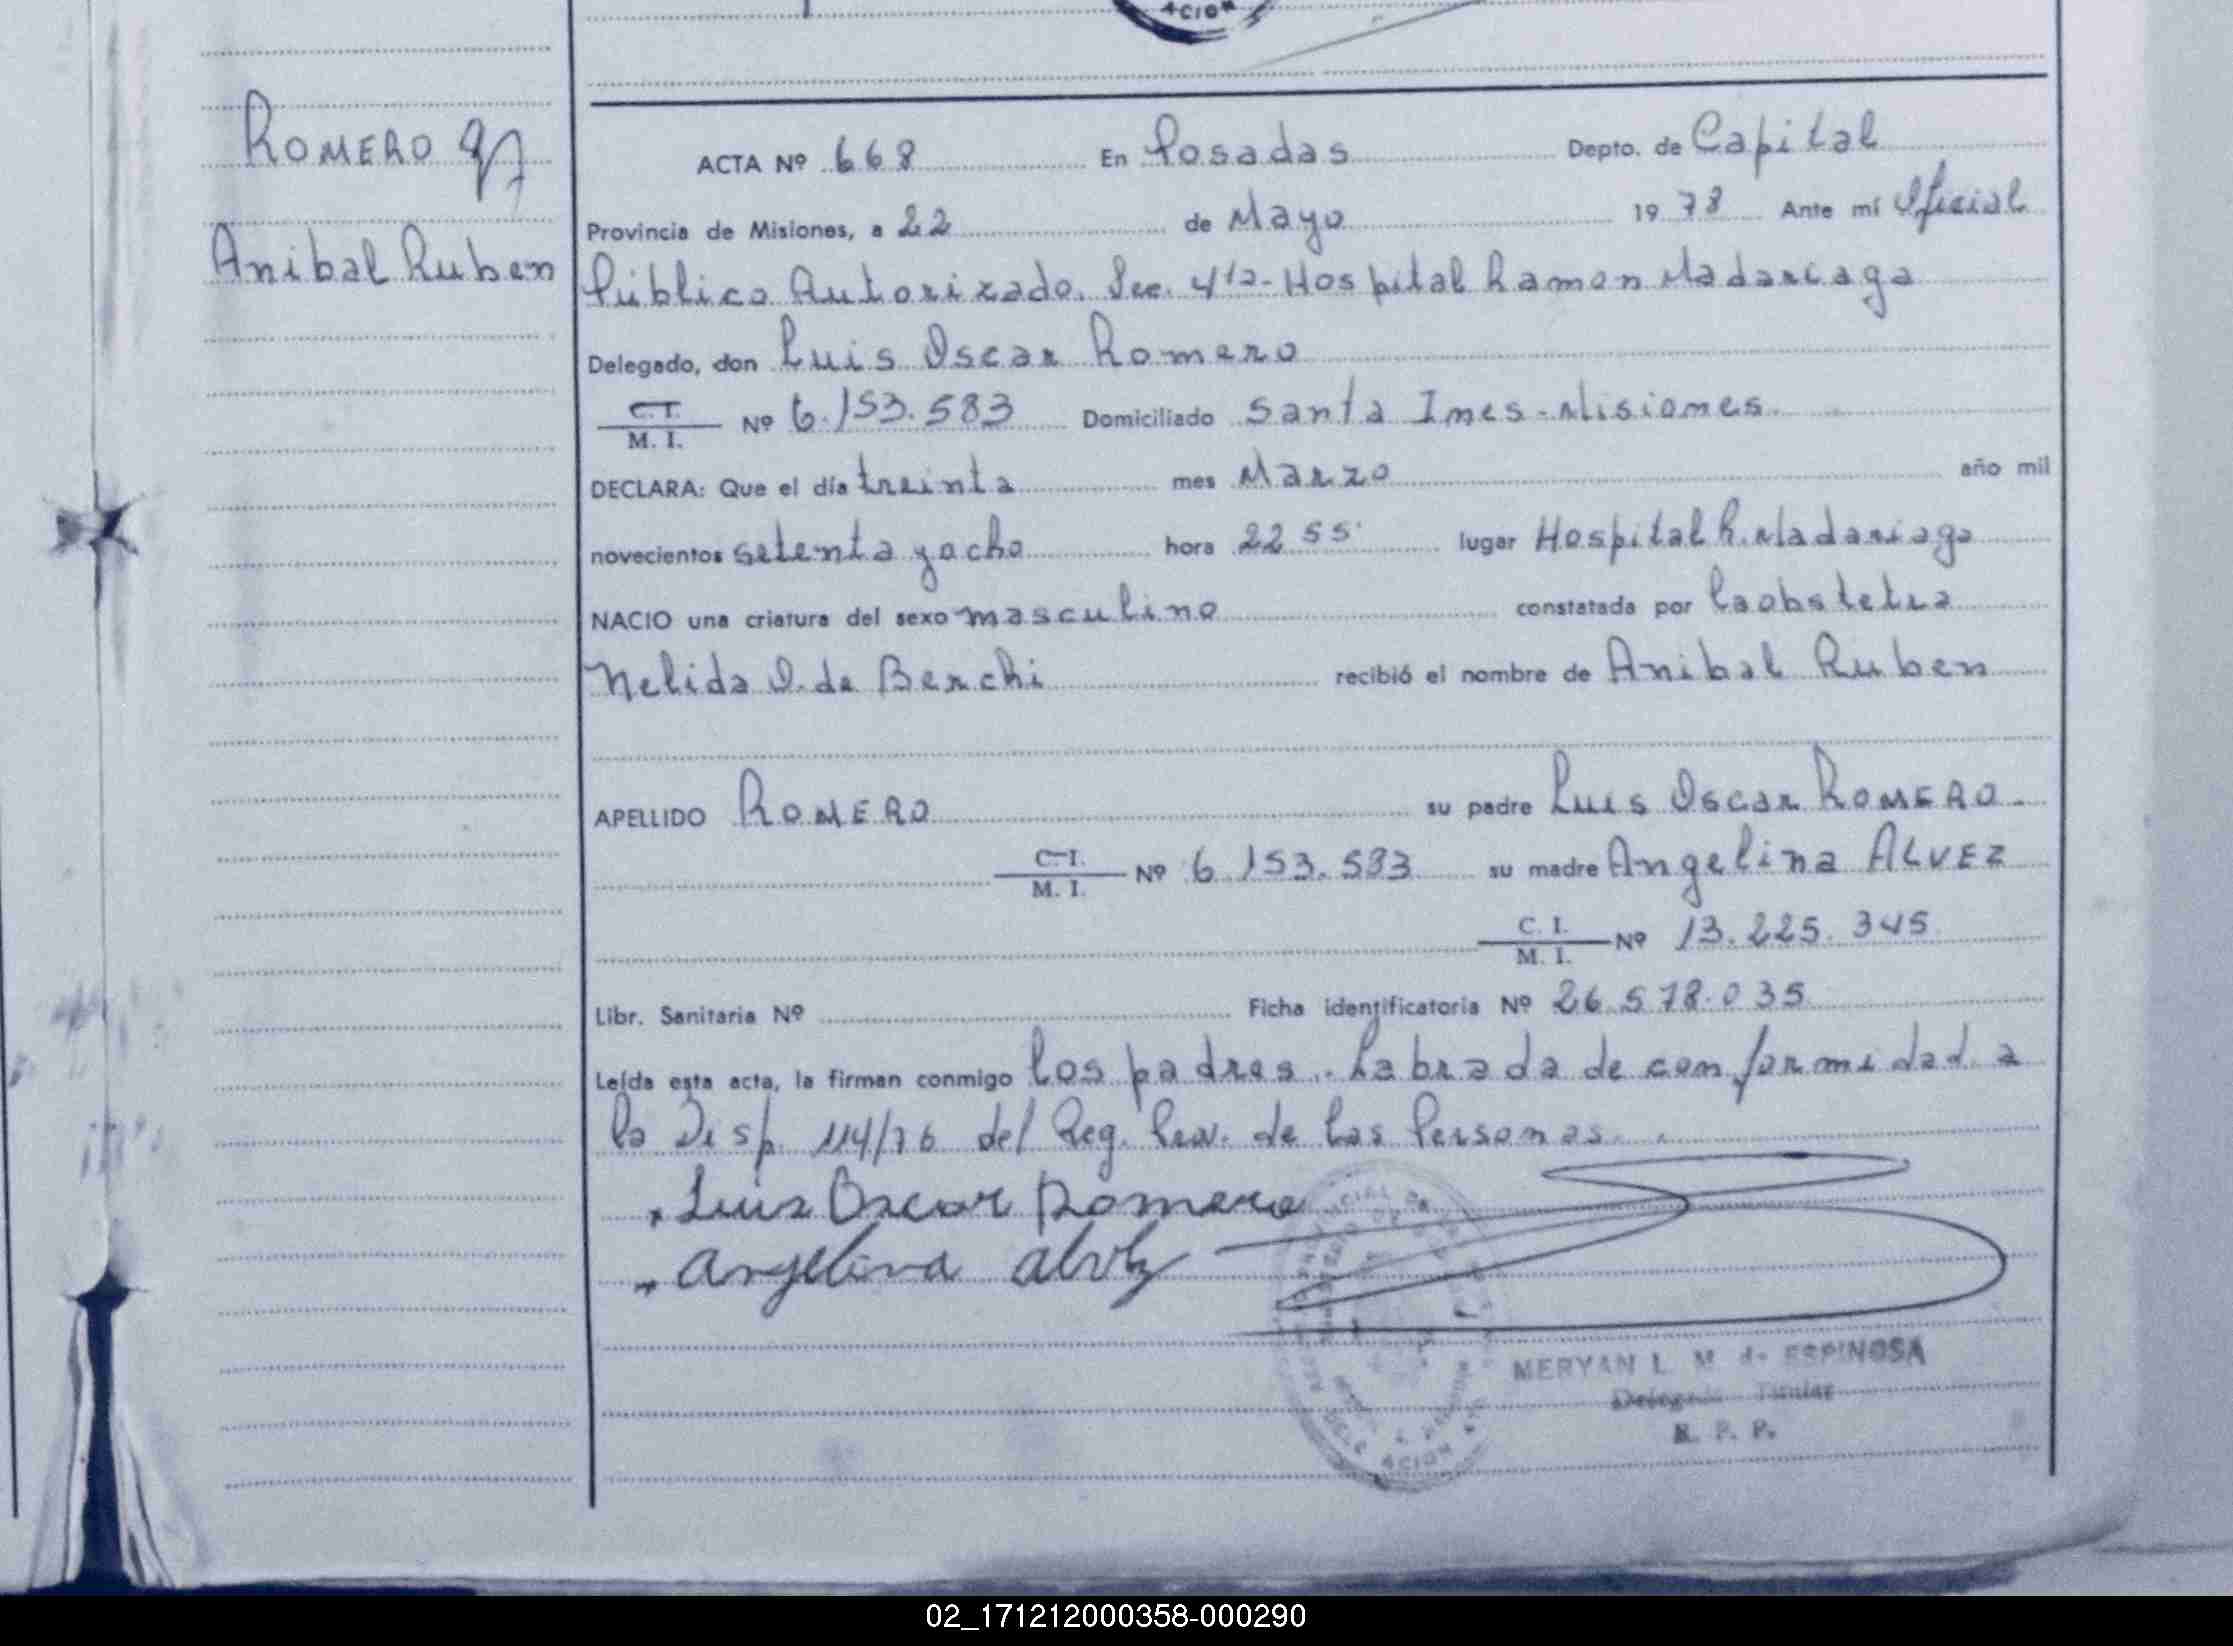 ACION
ROMERO
Anibal Ruben
ACTA Nº 668 En Posadas Depto. de Capital
Provincia de Misiones, a 22 de Mayo 1978 Ante mí Oficial
Público Autorizado. Sec. 4ta- Hospital Ramon Madariaga
Delegado, don Luis Oscar Romero
C.I. M. I. Nº 6.153.583 Domiciliado Santa Ines - Misiones.
DECLARA: Que el día treinta mes Marzo año mil
novecientos setenta y ocho hora 22 55' lugar Hospital R. Madariaga
NACIO una criatura del sexo masculino constatada por la obstetra
Nelida O. de Berchi recibió el nombre de Anibal Ruben
APELLIDO ROMERO su padre Luis Oscar ROMERO.
C.I. M. I. Nº 6.153.583 su madre Angelina ALVEZ
C. I. M. I. Nº 13.225.345
Libr. Sanitaria Nº Ficha identificatoria Nº 26.578.035
Leída esta acta, la firman conmigo los padres. Labrada de conformidad a
la Disp. 114/76 del Reg. Prov. de las Personas.
Luis Oscar Romero
Angelina alvez
MERYAN L. M. de ESPINOSA
Delegada Titular
R. P. P.
02_171212000358-000290